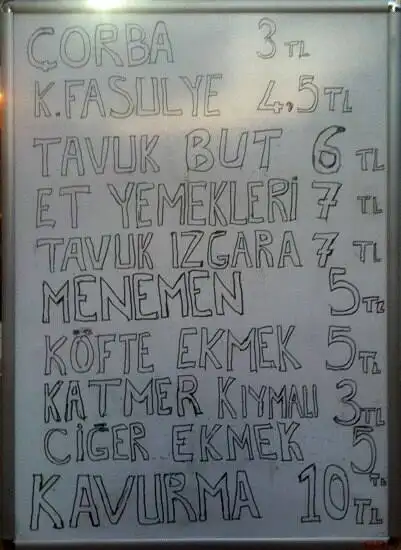 ÇORBA 3 TL
K.FASULYE 4,5 TL
TAVUK BUT 6 TL
ET YEMEKLERİ 7 TL
TAVUK IZGARA 7 TL
MENEMEN 5 TL
KÖFTE EKMEK 5 TL
KATMER KIYMALI 3 TL
CİĞER EKMEK 5 TL
KAVURMA 10 TL